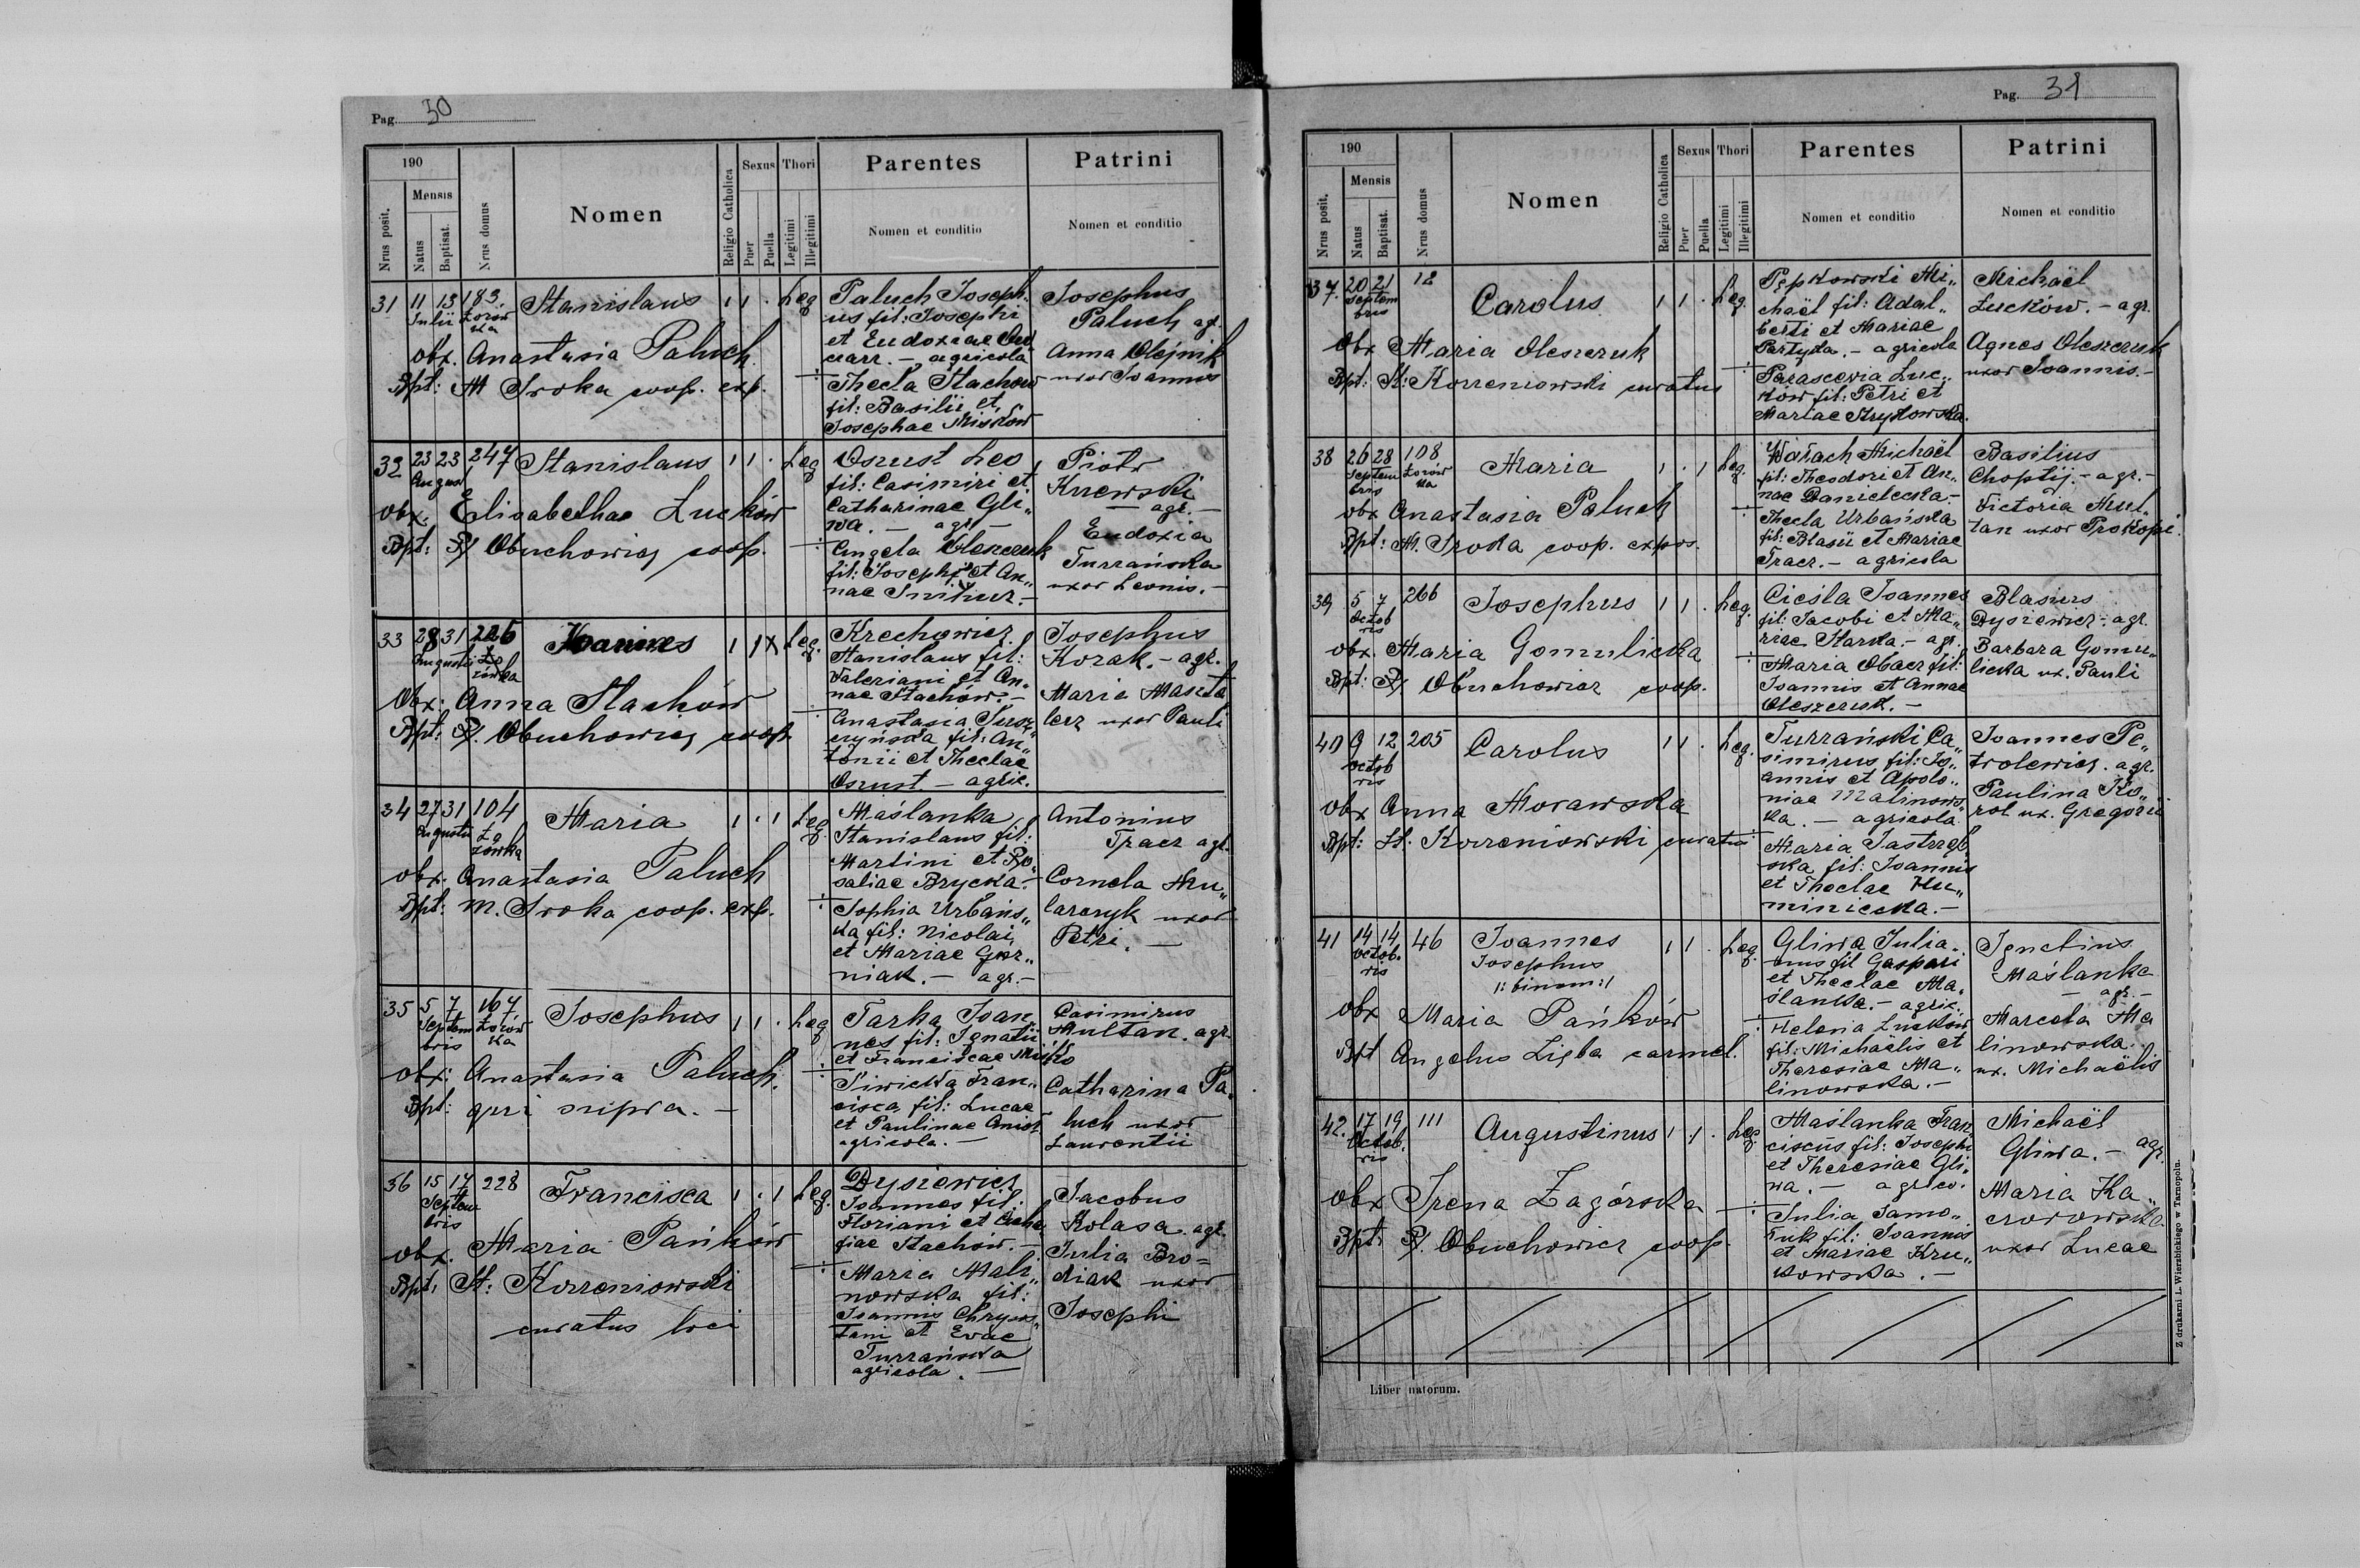 Pag. 30
190
Mensis
Nrus posit.
Natus
Baptisat.
Nrus domus
Nomen
Religio Catholica
Sexus
Puer
Puella
Thori
Legitimi
Illegitimi
Parentes
Nomen et conditio
Patrini
Nomen et conditio
31 11 13 183. Stanislaus 1 1 . Leg
Julii Łozów
ka
obx. Anastasia Paluch
Bpt: M Sroka coop. exp.
Paluch Joseph„
us fil: Josephi
et Eudoxiae
agricola
÷ Thecla Stachow
fil: Basilii et
Josephae Miskow
Josephus
Paluch agr.
Anna Olejnik
uxor Joannis
32 23 23 247 Stanislaus 1 1 . Leg
August
obx. Elisabethae Lucków
Bpt: Obuchowicz coop.
Osust Leo
fil: Casimiri et
Catharinae Gli„
wa. — agr —
÷ Angela Oleszczuk
fil: Josephi et An„
nae
Piotr
Kuewski
— agr. —
Eudoxia
Turzańska
uxor Leonis. —
33 28 31 226 Joannes 1 1 X Leg.
Augusti Ło
zówka
Obx: Anna Stachów
Bpt: Obuchowicz coop.
Krechowicz
Stanislaus fil:
Valeriani et An„
nae Stachów. —
÷ Anastasia Jusz„
czyńska fil: An„
tonii et Theclae
Osust. — agric.
Josephus
Kozak. — agr.
Maria Maszta
lerz uxor Pauli
34 27 31 104 Maria 1 . 1 Leg.
Augusti Ło
zówka
obx. Anastasia Paluch
Bpt: M. Sroka coop. exp.
Maślanka
Stanislaus fil:
Martini et Ro„
saliae Brycka. —
÷ Sophia Urbańs„
ka fil: Nicolai
et Mariae Gorz„
niak. — agr. —
Antonius
Tracz agr.
Cornela Mu„
larczyk uxor
Petri. —
35 5 7 167 Josephus 1 1 . Leg
Septem Łozów
bris ka
obx: Anastasia Paluch.
Bpt: qui supra. —
Tarka Joan„
nes fil: Ignatii
et Franciscae Mućko
÷ Siwicka Fran„
cisca fil: Lucae
et Paulinae Anioł
agricola. —
Casimirus
Multan. agr.
Catharina Pa„
luch uxor
Laurentii
36 15 17 228 Francisca 1 . 1 Leg.
Septem
bris
obx. Maria Pańków
Bpt. St: Korzeniowski
curatus loci
Dysiewicz
Joannes fil:
Floriani et
Stachów. —
÷ Maria Mali„
nowska fil:
Joannis Chrysos„
tomi et Evae
Turzańska
agricola. —
Jacobus
Kolasa agr.
Julia Bro=
diak uxor
Josephi
Pag. 31
190
Mensis
Nrus posit.
Natus
Baptisat.
Nrus domus
Nomen
Religio Catholica
Sexus
Puer
Puella
Thori
Legitimi
Illegitimi
Parentes
Nomen et conditio
Patrini
Nomen et conditio
37. 20 21 12 Carolus 1 1 . Leg.
Septem
bris
Obx Maria Oleszczuk
Bpt: St: Korzeniowski curatus
Pępkowski Mi„
chaël fil: Adal„
berti et Mariae
Partyka. — agricola
÷ Parascewia Luc„
ków fil: Petri et
Mariae Strytowska.
Michaël
Luckow. — agr.
Agnes Oleszczuk
uxor Joannis. —
38 26 28 108 Maria 1 . 1 Leg.
Septem Łozów
bris ka
obx Anastasia Paluch
Bpt: M. Sroka coop. expos.
Wałach Michaël
fil: Theodori et An„
nae Danielecka. —
÷ Thecla Urbańska
fil: Blasii et Mariae
Tracz. — agricola
Basilius
Choptij. — agr. —
Victoria Mul„
tan uxor Prokopi.
39 5 7 266 Josephus 1 1 . Leg.
Octob
ris
obx. Maria Gomulicka
Bpt: Obuchowicz coop.
Cieśla Joannes
fil: Jacobi et Ma„
riae Starka. — agr.
÷ Maria Obacz fil:
Joannis et Annae
Oleszczuk. —
Blasius
Dysiewicz. agr.
Barbara Gomu„
licka ux. Pauli
40 9 12 205 Carolus 1 1 . Leg.
octob
ris
obx Anna Morawska
Bpt: St. Korzeniowski curatus
Turzański Ca„
simirus fil: Jo„
annis et Apolo„
niae Malinows„
ka. — agricola
÷ Maria Jastrzęb
ska fil: Joannis
et Theclae Hu„
miniecka. —
Joannes Pe„
trolewicz. agr.
Paulina Ko„
rol ux. Gregorii
41 14 14 46 Joannes 1 1 . Leg.
octob. Josephus
ris /: binom :/
obx Maria Pańków
Bpt Angelus Ligba carmel.
Gliwa Julia„
nus fil Gaspari
et Theclae Ma„
ślanka. — agric.
÷ Helena Lucków
fil: Michaëlis et
Theresiae Ma„
linowska. —
Ignatius
Maślanka
— agr. —
Marcela Ma
linowska.
ux. Michaëlis
42. 17 19 111 Augustinus 1 1 . Leg
Octob.
ris
obx Irena Zagórska
Bpt. Obuchowicz coop.
Maślanka Fran
ciscus fil: Josephi
et Theresiae Gli„
wa. — agrico.
÷ Julia Samo„
Tuk fil: Joannis
et Mariae Kru„
kowska. —
Michaël
Gliwa. — agr.
Maria Ka„
czorowska
uxor Lucae
Liber natorum.
Z drukarni L. Wierzbickiego w Tarnopolu.